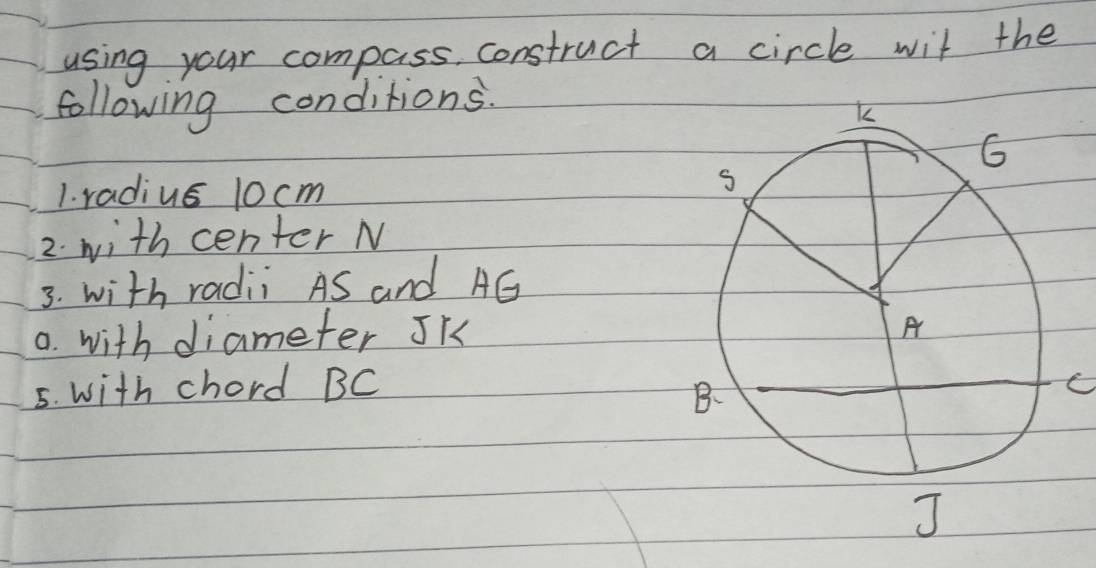 using your compass, construct a circle wit the
following conditions.
K
G
S
1. radius 10cm
2. with center N
3. with radii AS and AG
0. with diameter JK
A
5. with chord BC
B
C
J